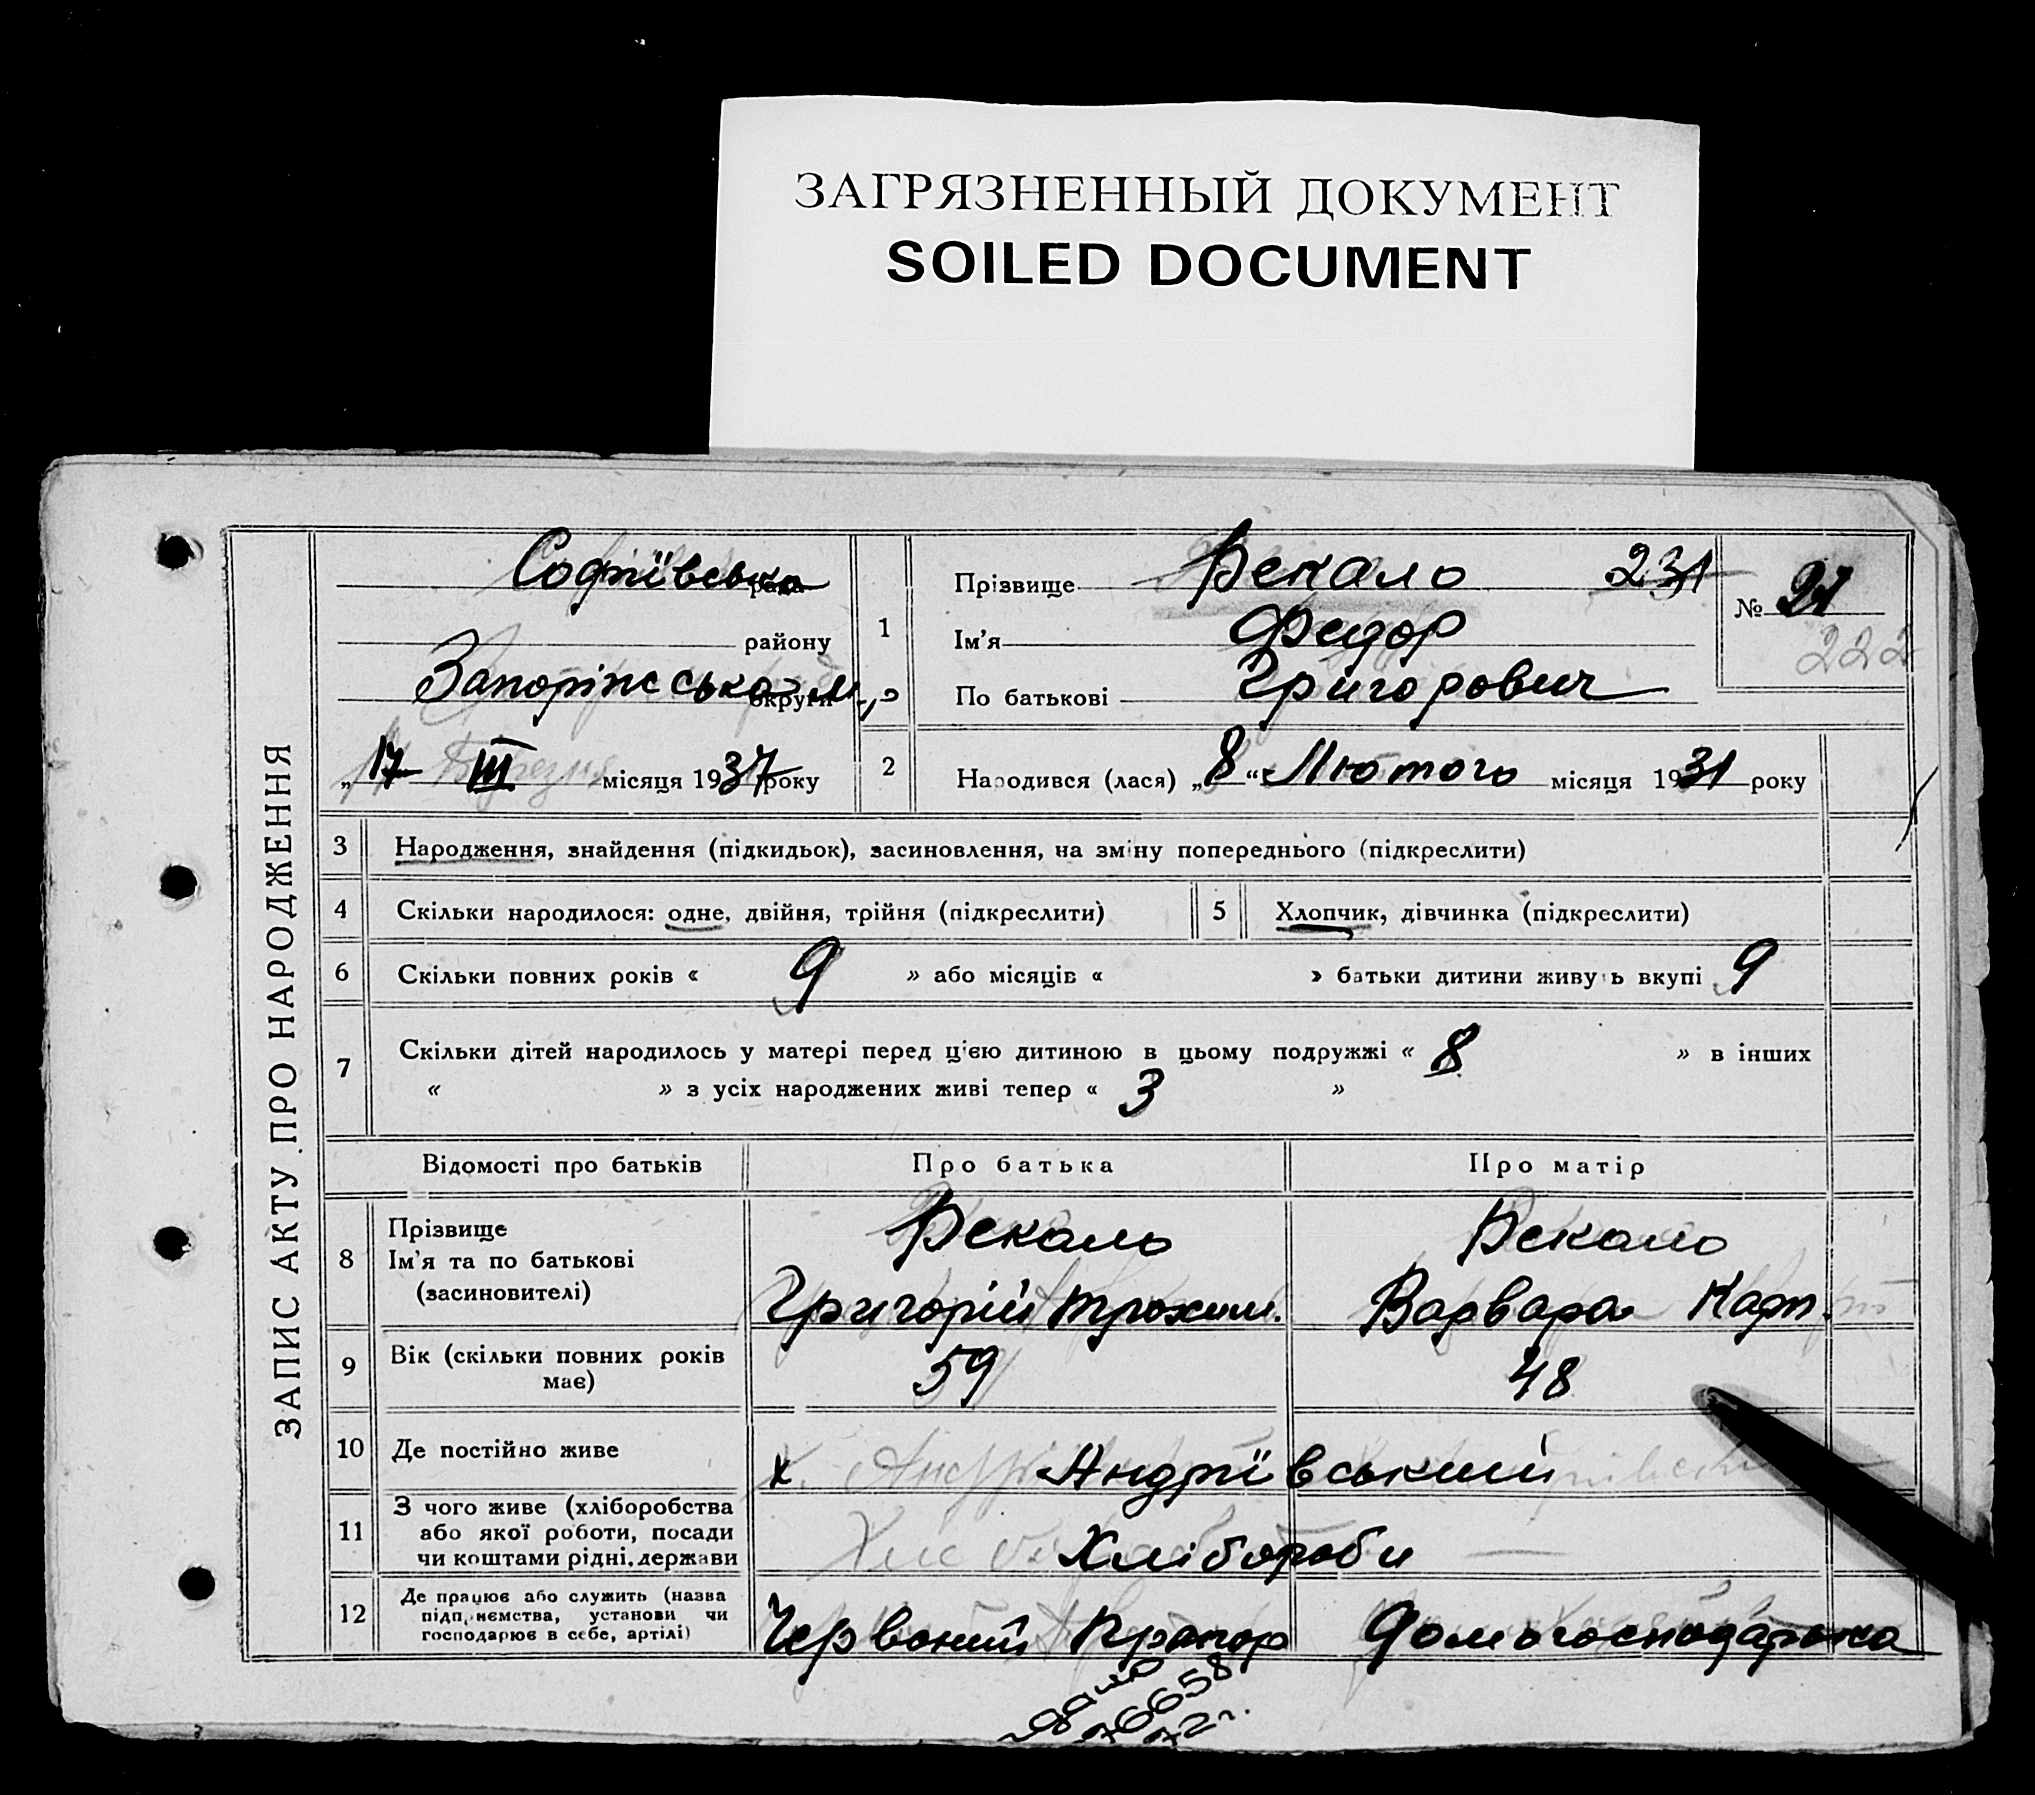 ЗАГРЯЗНЕННЫЙ ДОКУМЕНТ
SOILED DOCUMENT
ЗАПИС АКТУ ПРО НАРОДЖЕННЯ
Софіївська рада
району
Запорізська м/р округи
„17 III місяця 1937 року
1
Прізвище Бекало 231
Ім'я Федор
По батькові Григорович
№ 21
222
2 Народився (лася) „8“ Лютого місяця 1931 року
3 Народження, знайдення (підкидьок), засиновлення, на зміну попереднього (підкреслити)
4 Скільки народилося: одне, двійня, трійня (підкреслити) 5 Хлопчик, дівчинка (підкреслити)
6 Скільки повних років « 9 » або місяців « » батьки дитини живуть вкупі 9
7 Скільки дітей народилось у матері перед цією дитиною в цьому подружжі « 8 » в інших
« » з усіх народжених живі тепер « 3 »
Відомості про батьків Про батька Про матір
8 Прізвище Бекало Бекало
Ім'я та по батькові
(засиновителі) Григорій Трохим. Варвара Карп.
9 Вік (скільки повних років
має) 59 48
10 Де постійно живе х Андріївський
11 З чого живе (хліборобства
або якої роботи, посади
чи коштами рідні, держави Хлібороби
12 Де працює або служить (назва
підприємства, установи чи
господарює в себе, артілі) Червоний Прапор Домогосподарька
76658
72 г.